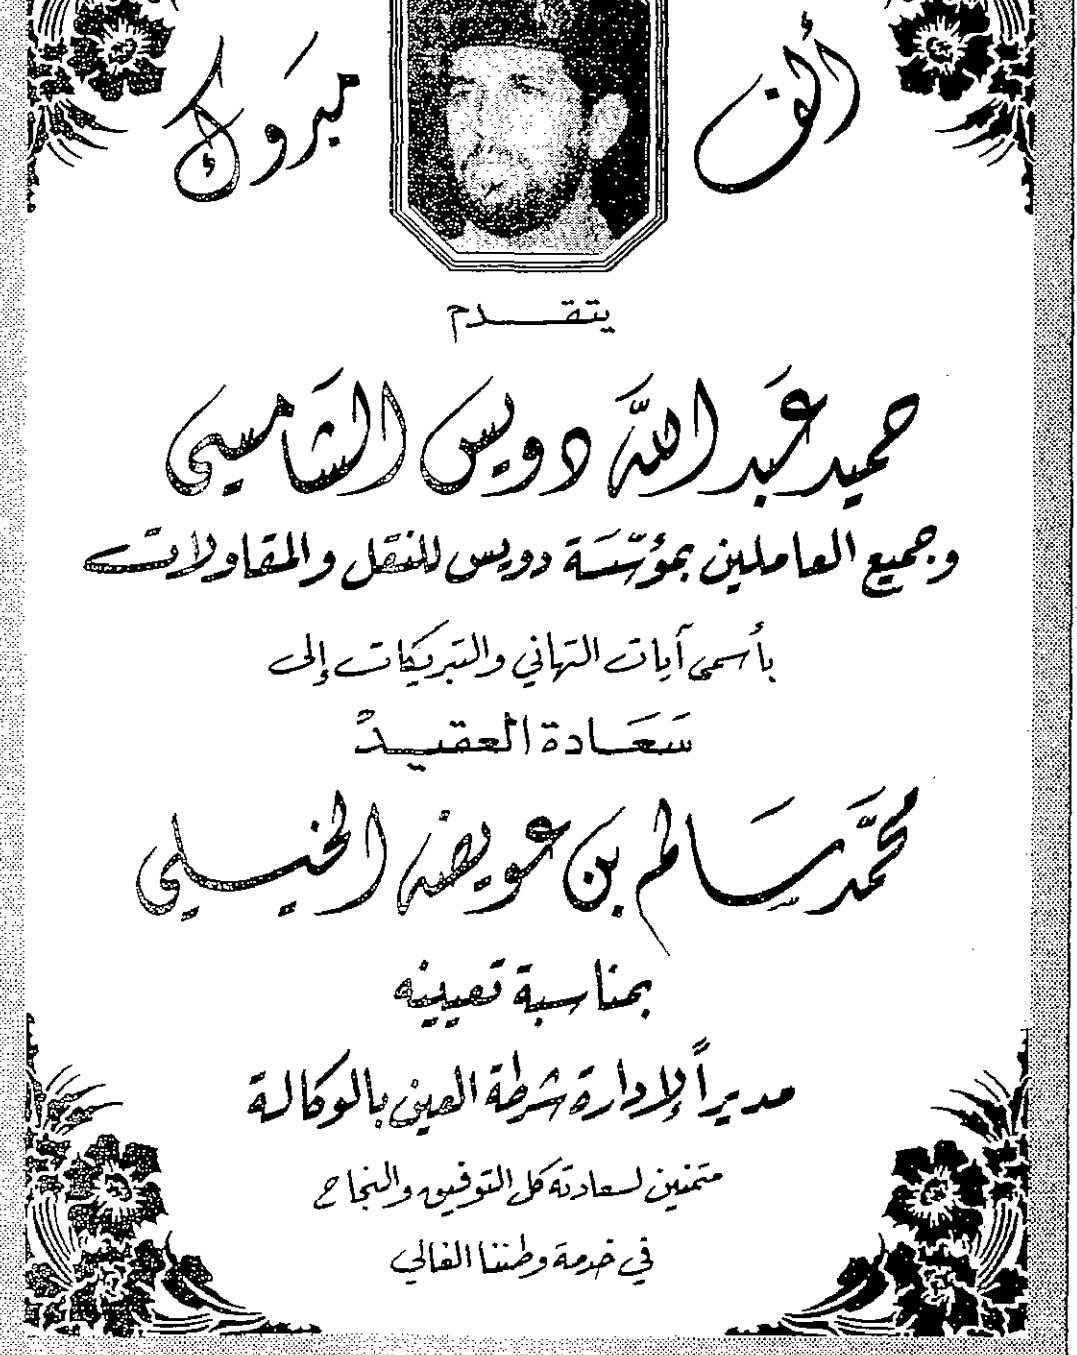 ألف مبروك
يتقدم
حميد عبد الله دويس الشامسي
وجميع العاملين بمؤسسة دويس للنقل والمقاولات
بأسمى آيات التهاني والتبريكات إلى
سَعَادة العقيد
محمد سالم بن عويضه الخييلي
بمناسبة تعيينه
مديراً لإدارة شرطة العين بالوكالة
متمنين لسعادته كل التوفيق والنجاح
في خدمة وطننا الغالي